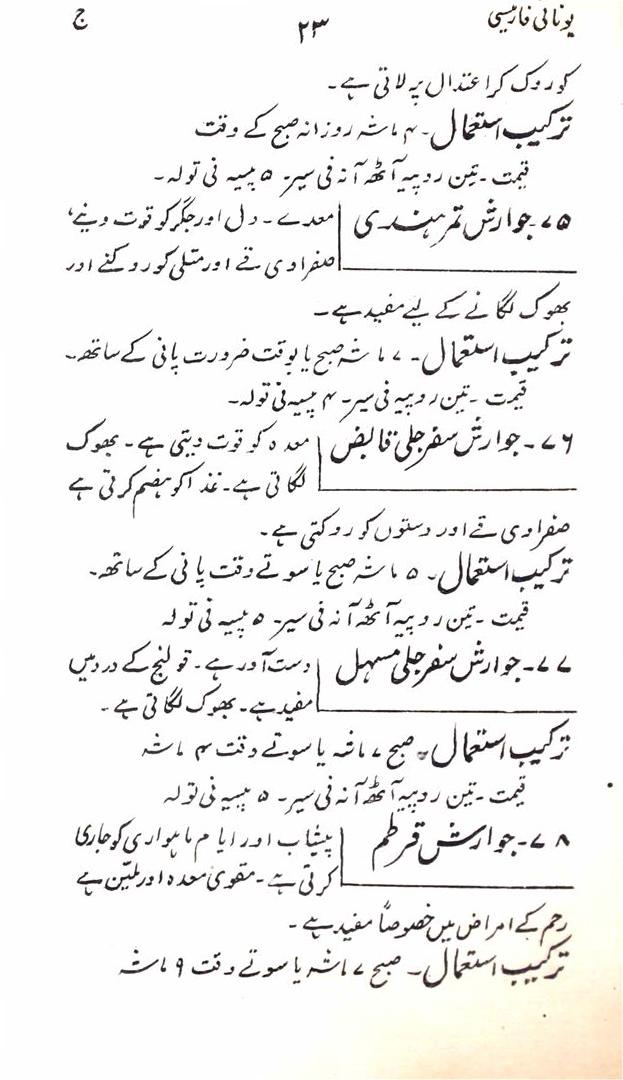 یونانی فارمیسی ۲۳ ج
کو روک کر اعتدال پر لاتی ہے۔
ترکیب استعمال۔ ۴ ماشہ روزانہ صبح کے وقت
قیمت۔ تین روپیہ آٹھ آنہ فی سیر۔ ۵ پیسہ فی تولہ۔
۷۵۔ جوارش تمر ہندی معدے۔ دل اور جگر کو قوت دینے،
صفراوی قے اور متلی کو روکنے اور
بھوک لگانے کے لیے مفید ہے۔
ترکیب استعمال۔ ۷ ماشہ صبح یا بوقت ضرورت پانی کے ساتھ۔
قیمت۔ تین روپیہ فی سیر۔ ۴ پیسہ فی تولہ۔
۷۶۔ جوارش سفرجلی قابض معدہ کو قوت دیتی ہے۔ بھوک
لگاتی ہے۔ غذا کو ہضم کرتی ہے
صفراوی قے اور دستوں کو روکتی ہے۔
ترکیب استعمال۔ ۵ ماشہ صبح یا سوتے وقت پانی کے ساتھ۔
قیمت۔ تین روپیہ آٹھ آنہ فی سیر۔ ۵ پیسہ فی تولہ
۷۷۔ جوارش سفرجلی مسہل دست آور ہے۔ قولنج کے درد میں
مفید ہے۔ بھوک لگاتی ہے۔
ترکیب استعمال۔ صبح ۷ ماشہ یا سوتے وقت ۴ ماشہ
قیمت۔ تین روپیہ آٹھ آنہ فی سیر۔ ۵ پیسہ فی تولہ
۷۸۔ جوارش قرطم پیشاب اور ایام ماہواری کو جاری
کرتی ہے۔ مقوی معدہ اور ملین ہے
رحم کے امراض میں خصوصاً مفید ہے۔
ترکیب استعمال۔ صبح ۷ ماشہ یا سوتے وقت ۹ ماشہ